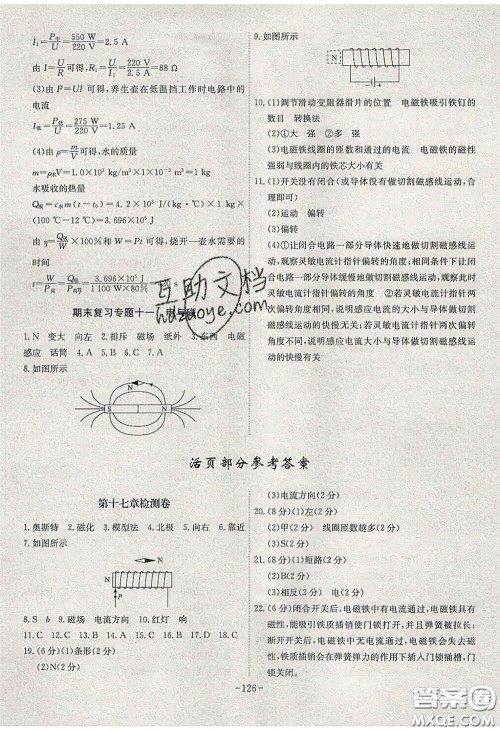 I₁=P中/U=550 W/220 V=2.5 A
由 I=U/R可得,R₁=U/I₁=220 V/2.5 A=88 Ω
(3)由 P=UI 可得,养生壶在低温挡工作时电路中的
电流
I低=P低/U=275 W/220 V=1.25 A
(4)由 ρ=m/V可得,水的质量
m=ρ水V=1.0×10³ kg/m³×1×10⁻³ m³=1 kg
水吸收的热量
Q吸=c水m(t-t₀)=4.2×10³ J/(kg·℃)×1 kg×
=3.696×10⁵ J
由 η=Q吸/W×100%和 W=Pt 可得,烧开一壶水需要的
时间
期末复习专题十一
1.N 变大 向左 2.排斥 磁场 纸外 3.东西 电磁
感应 话筒 4.A 5.D 6.B 7.C
8.如图所示
S N
N
9.如图所示
N
10.(1)调节滑动变阻器滑片的位置 电磁铁吸引铁钉的
数目 转换法
(2)①大 强 ②多 强
(3)电磁铁线圈的匝数和通过的电流 电磁铁的磁性
强弱与线圈内的铁芯大小有关
11.(1)开关没有闭合(或导体没有做切割磁感线运动,合
理即可)
(2)运动 偏转
(3)偏转
(4)①让闭合电路一部分导体快速地做切割磁感线运
动,观察此时灵敏电流计指针偏转的角度 保持其他
条件相同,闭合电路一部分导体缓慢地做切割磁感线运动,
观察此时灵敏电流计指针偏转的角度 ②若灵敏电流计指针两次
偏转角度相同,则说明感应电流大小与导体做切割磁感线
运动的快慢无关;若灵敏电流计指针两次偏转
角度不同,则说明感应电流大小与导体做切割磁感线
运动的快慢有关
活页部分参考答案
第十七章检测卷
1.奥斯特 2.磁化 3.模型法 4.北极 5.向右 6.靠近
7.如图所示
N
P
8.S b 9.磁场 电流方向 10.红灯 响
11.C 12.C 13.A 14.B 15.C 16.C 17.C 18.C
19.(6分)(1)条形(2分)
(2)N(2分)
(3)电流方向(2分)
20.(8分)(1)左(2分)
(2)甲(2分) 线圈匝数越多(2分)
(3)S(2分)
21.(8分)(1)短路(2分)
(2)电流(2分)
(3)相反(2分) 电源(2分)
22.(6分)闭合开关后,电磁铁中有电流通过,电磁铁具有
磁性,能吸引铁质插销使门锁打开,同时弹簧被拉长;
断开开关后,电磁铁中无电流通过,电磁铁会失去磁
性,铁质插销会在弹簧弹力的作用下插入门锁插槽,门
锁关闭。
-126-
互助文档
hdzuoye.com
答案圈
MXQE.COM